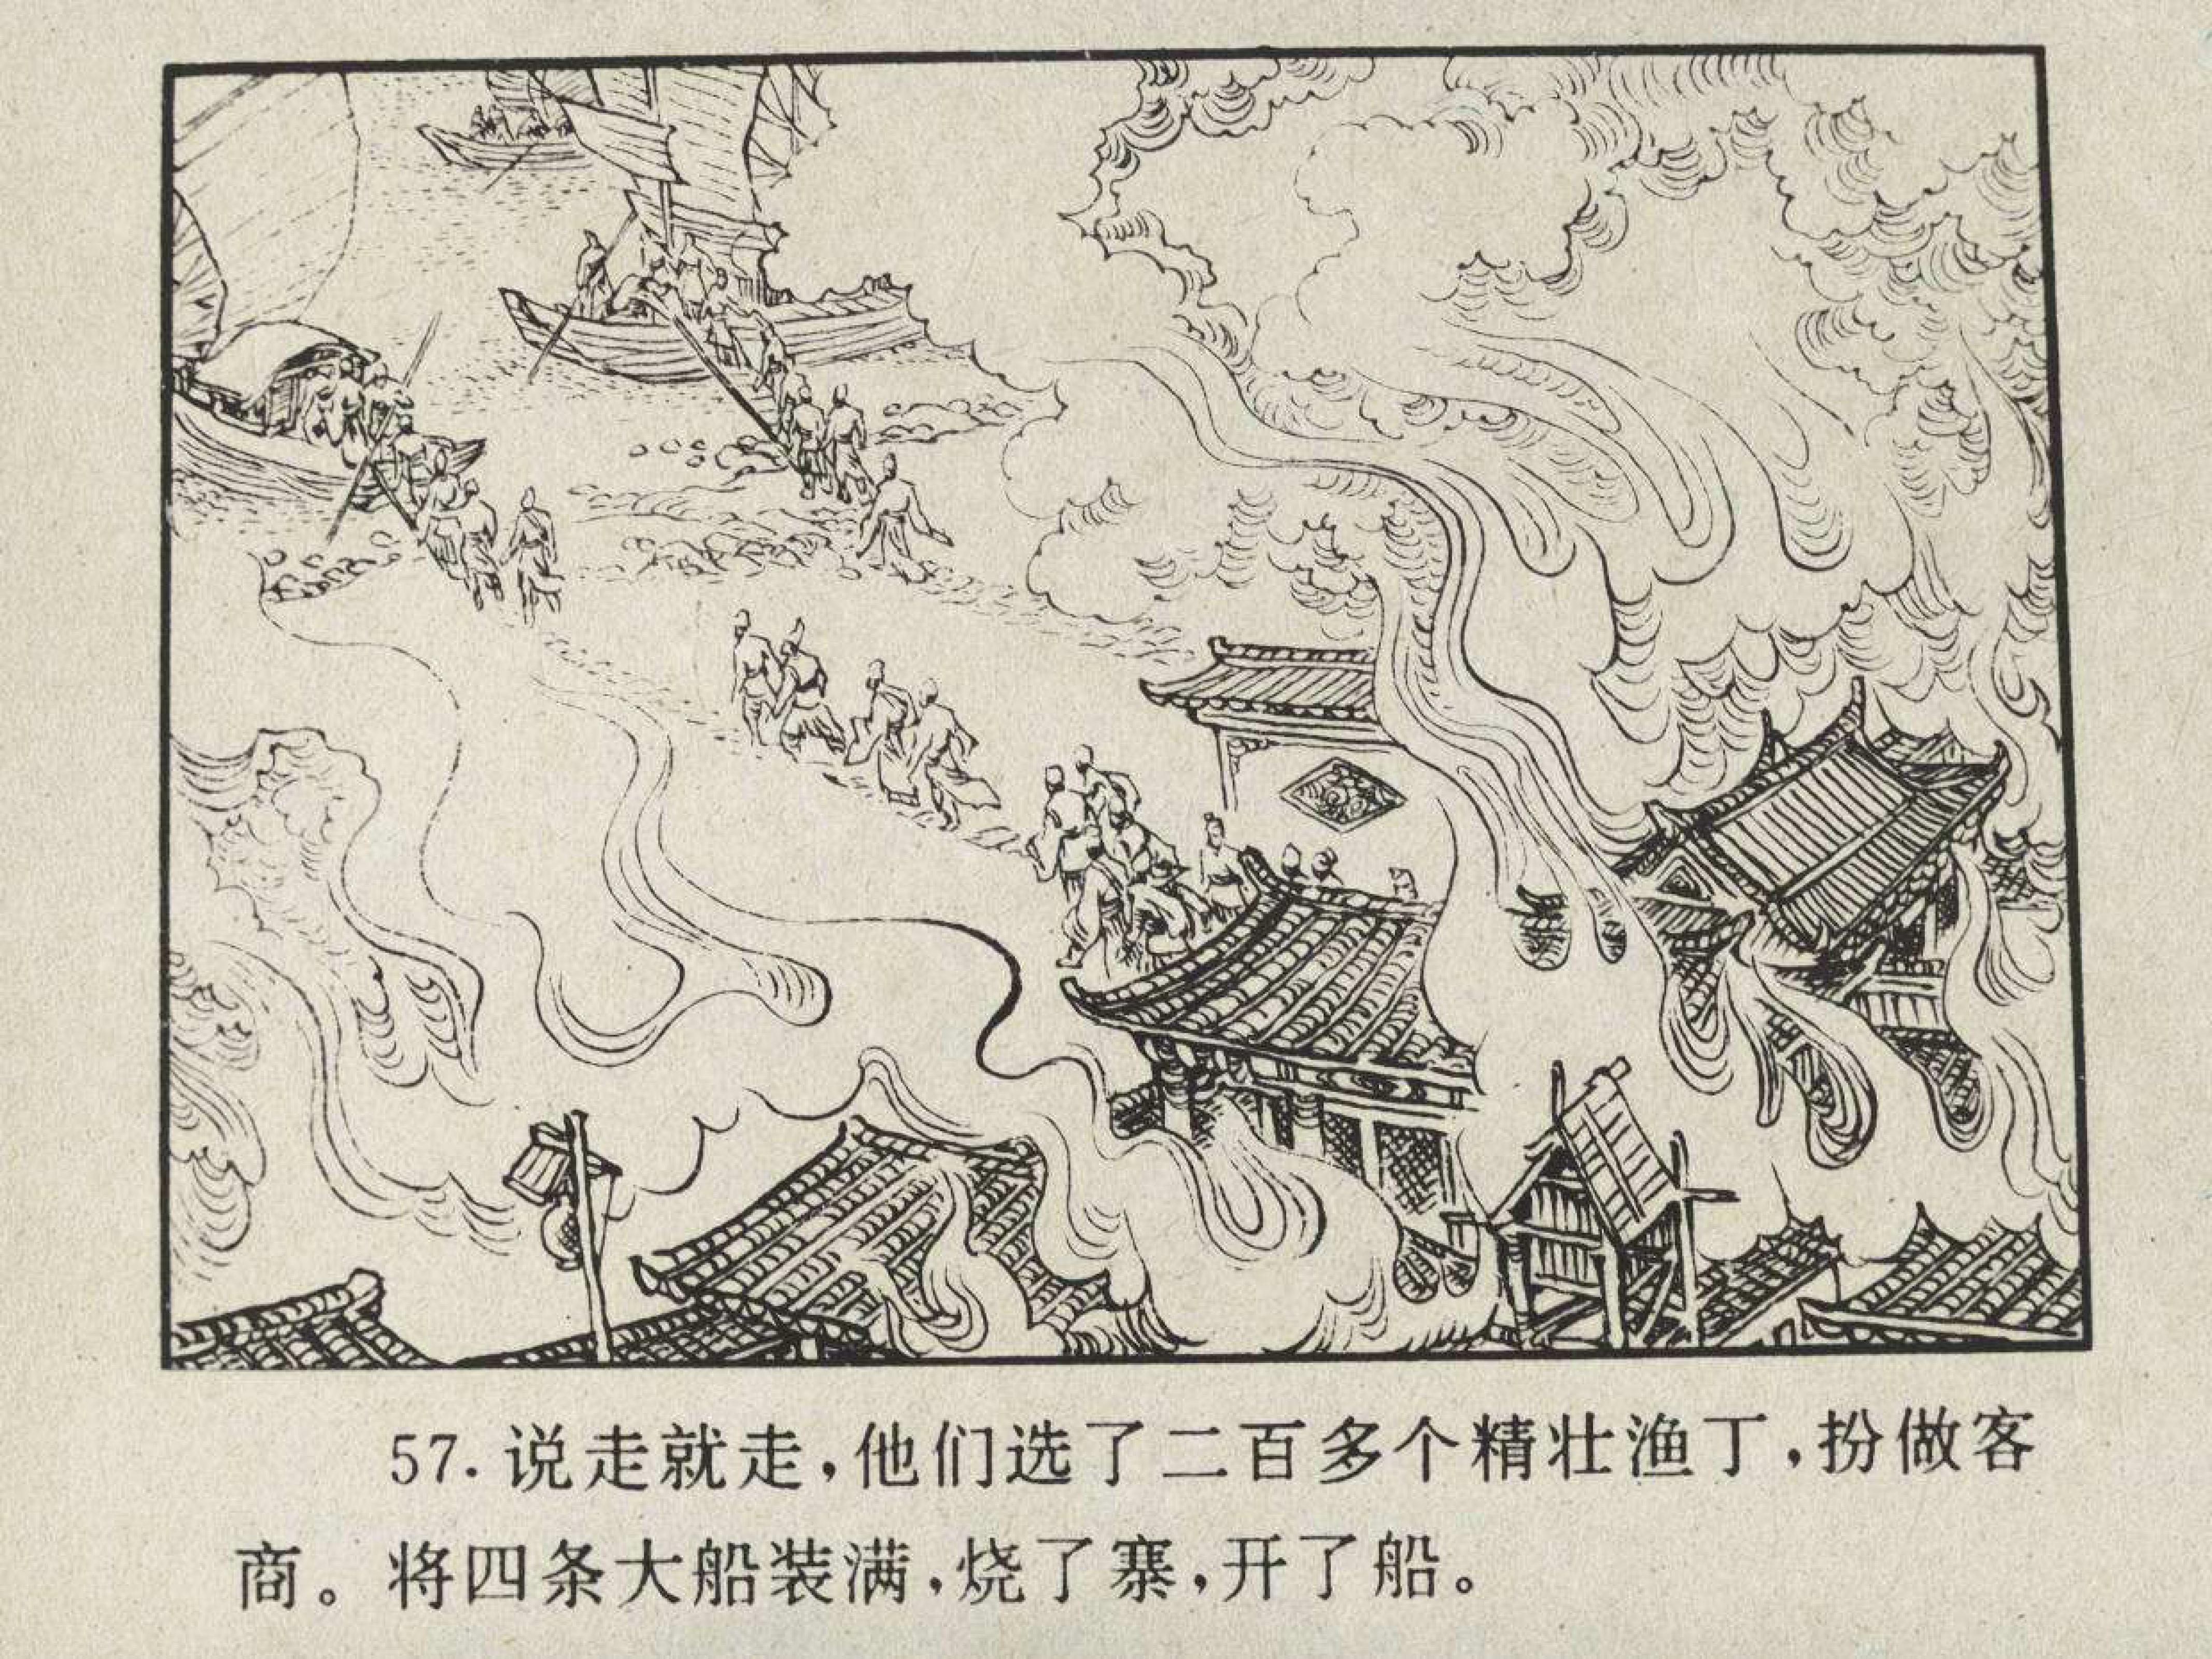 57. 说走就走，他们选了二百多个精壮渔丁，扮做客
商。将四条大船装满，烧了寨，开了船。